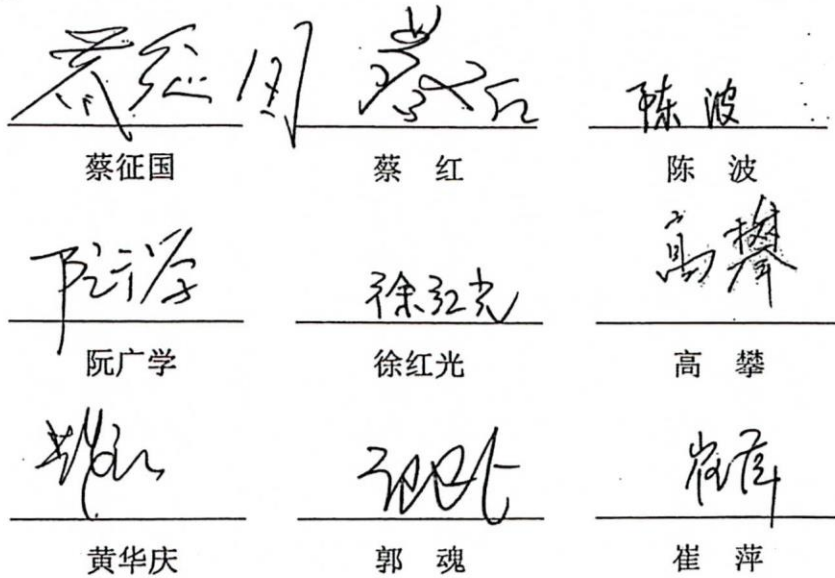 蔡征国 蔡红 陈波
蔡征国 蔡 红 陈 波
阮广学 徐红光 高攀
阮广学 徐红光 高 攀
崔萍
黄华庆 郭 魂 崔 萍